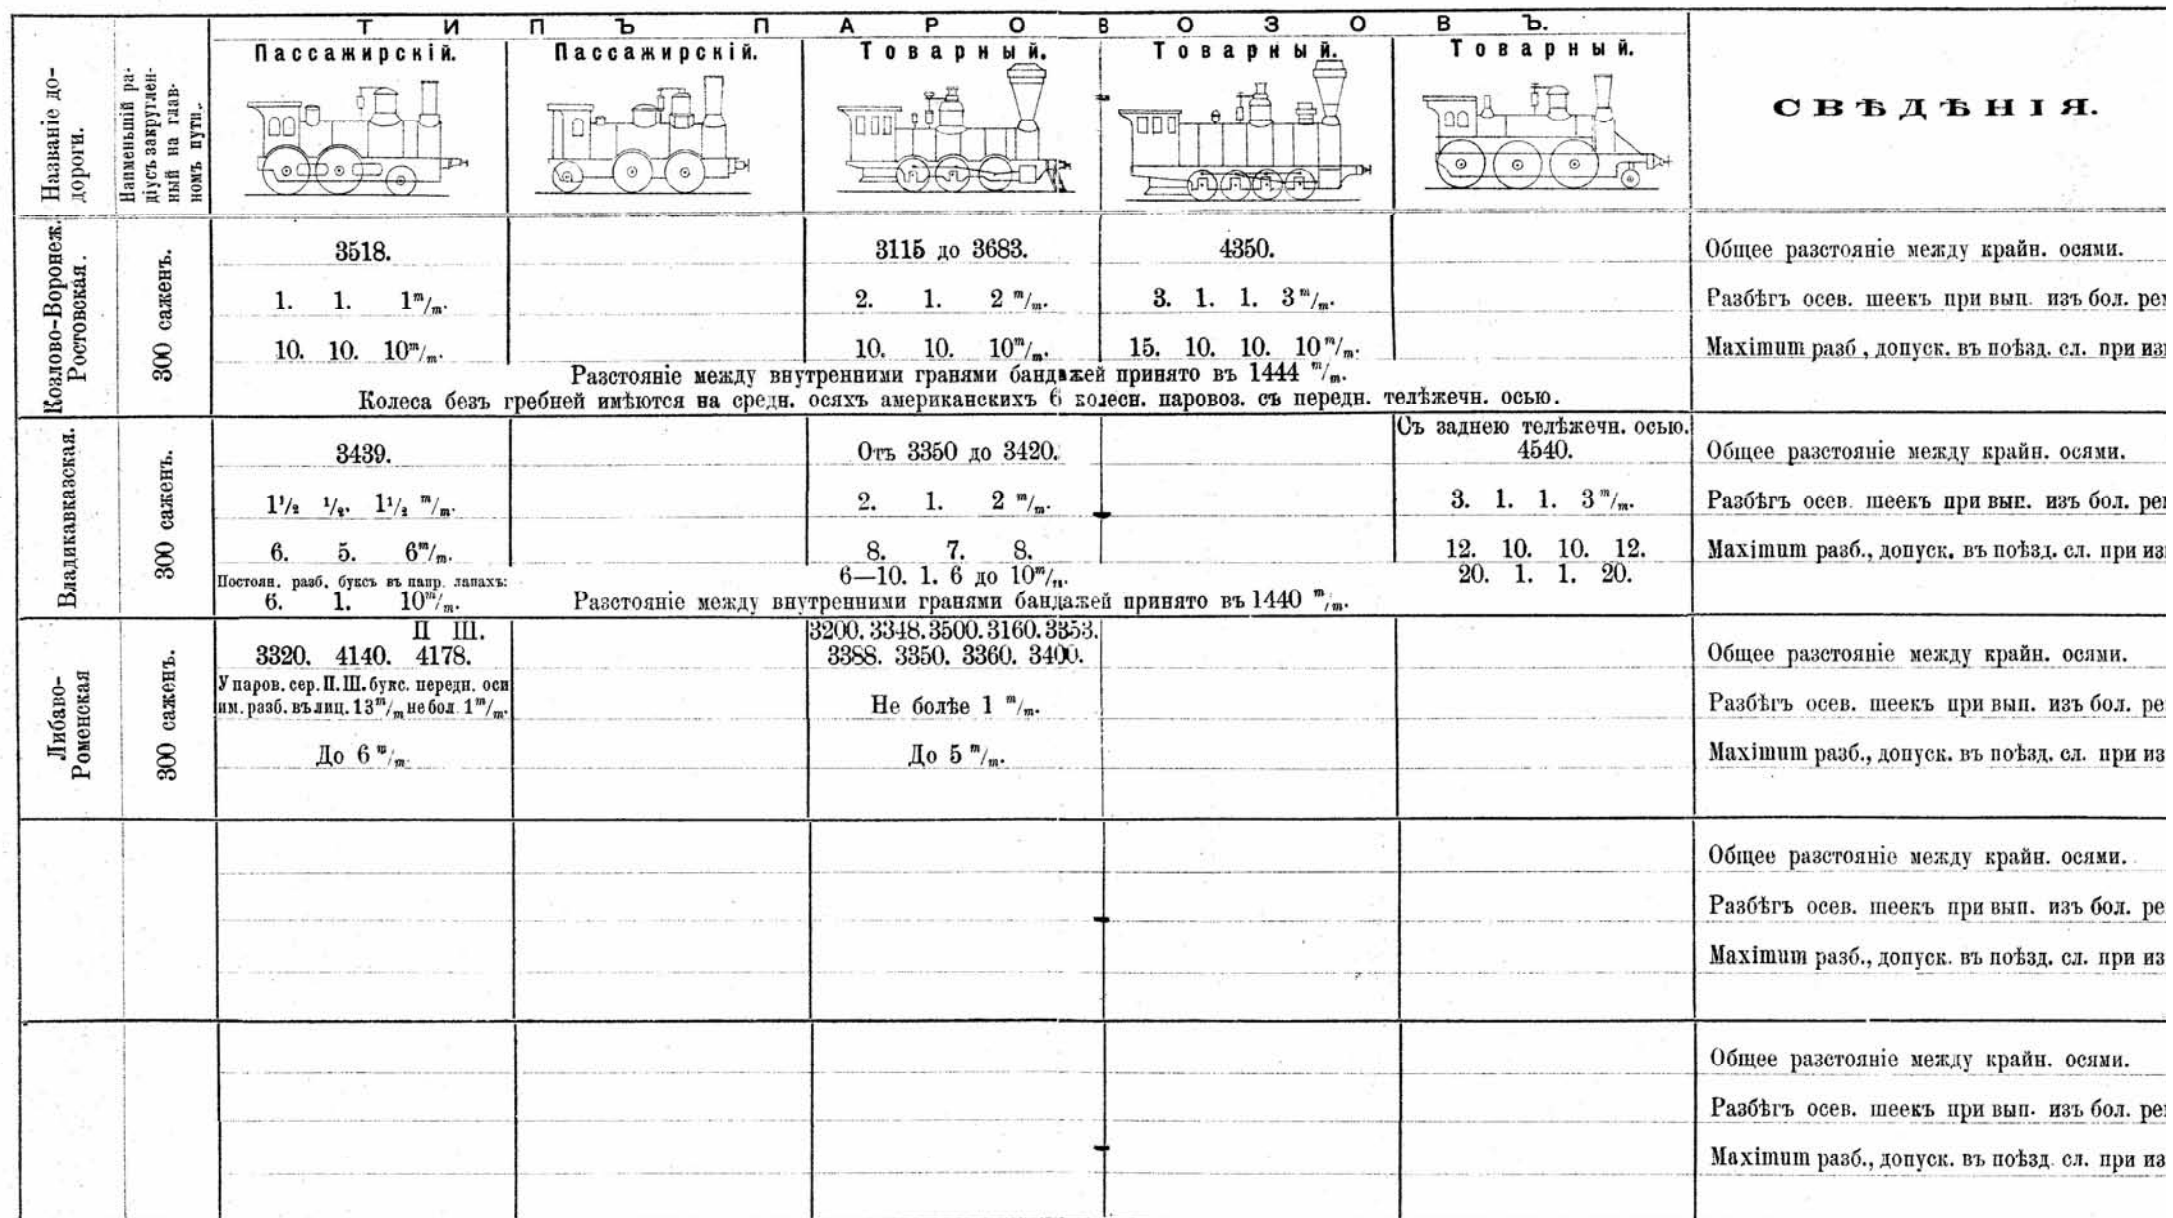 ТИПЪ ПАРОВОЗОВЪ.
Названіе до-
дороги.
Наименьшій ра-
діусъ закруглен-
ный на глав-
номъ пути.
Пассажирскій.
Пассажирскій.
Товарный.
Товарный.
Товарный.
СВѢДѢНІЯ.
Козлово-Воронеж.
Ростовская.
300 саженъ.
3518.
3115 до 3683.
4350.
Общее разстояніе между крайн. осями.
1. 1. 1 m/m.
2. 1. 2 m/m.
3. 1. 1. 3 m/m.
Разбѣгъ осев. шеекъ при вып. изъ бол. рем
10. 10. 10 m/m.
10. 10. 10 m/m.
15. 10. 10. 10 m/m.
Maximum разб., допуск. въ поѣзд. сл. при изн
Разстояніе между внутренними гранями бандажей принято въ 1444 m/m.
Колеса безъ гребней имѣются на средн. осяхъ американскихъ 6 колесн. паровоз. съ передн. телѣжечн. осью.
Владикавказская.
300 саженъ.
3439.
Отъ 3350 до 3420.
Съ заднею телѣжечн. осью.
4540.
Общее разстояніе между крайн. осями.
1 1/2 1/2. 1 1/2 m/m.
2. 1. 2 m/m.
3. 1. 1. 3 m/m.
Разбѣгъ осев. шеекъ при вып. изъ бол. рем
6. 5. 6 m/m.
8. 7. 8.
12. 10. 10. 12.
Maximum разб., допуск. въ поѣзд. сл. при изн
Постоян. разб. буксъ въ напр. лапахъ:
6. 1. 10 m/m.
6—10. 1. 6 до 10 m/m.
20. 1. 1. 20.
Разстояніе между внутренними гранями бандажей принято въ 1440 m/m.
Либаво-
Роменская
300 саженъ.
П Ш.
3320. 4140. 4178.
3200. 3348. 3500. 3160. 3353.
3388. 3350. 3360. 3400.
Общее разстояніе между крайн. осями.
У паров. сер. П. Ш. букс. передн. оси
им. разб. въ лиц. 13 m/m не бол. 1 m/m.
Не болѣе 1 m/m.
Разбѣгъ осев. шеекъ при вып. изъ бол. ре
До 6 m/m.
До 5 m/m.
Maximum разб., допуск. въ поѣзд. сл. при из
Общее разстояніе между крайн. осями.
Разбѣгъ осев. шеекъ при вып. изъ бол. ре
Maximum разб., допуск. въ поѣзд. сл. при из
Общее разстояніе между крайн. осями.
Разбѣгъ осев. шеекъ при вып. изъ бол. рем
Maximum разб., допуск. въ поѣзд. сл. при из